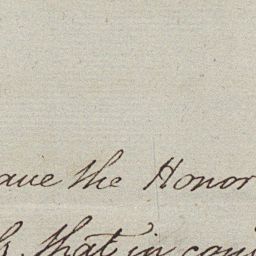 ave the Honor
that in con